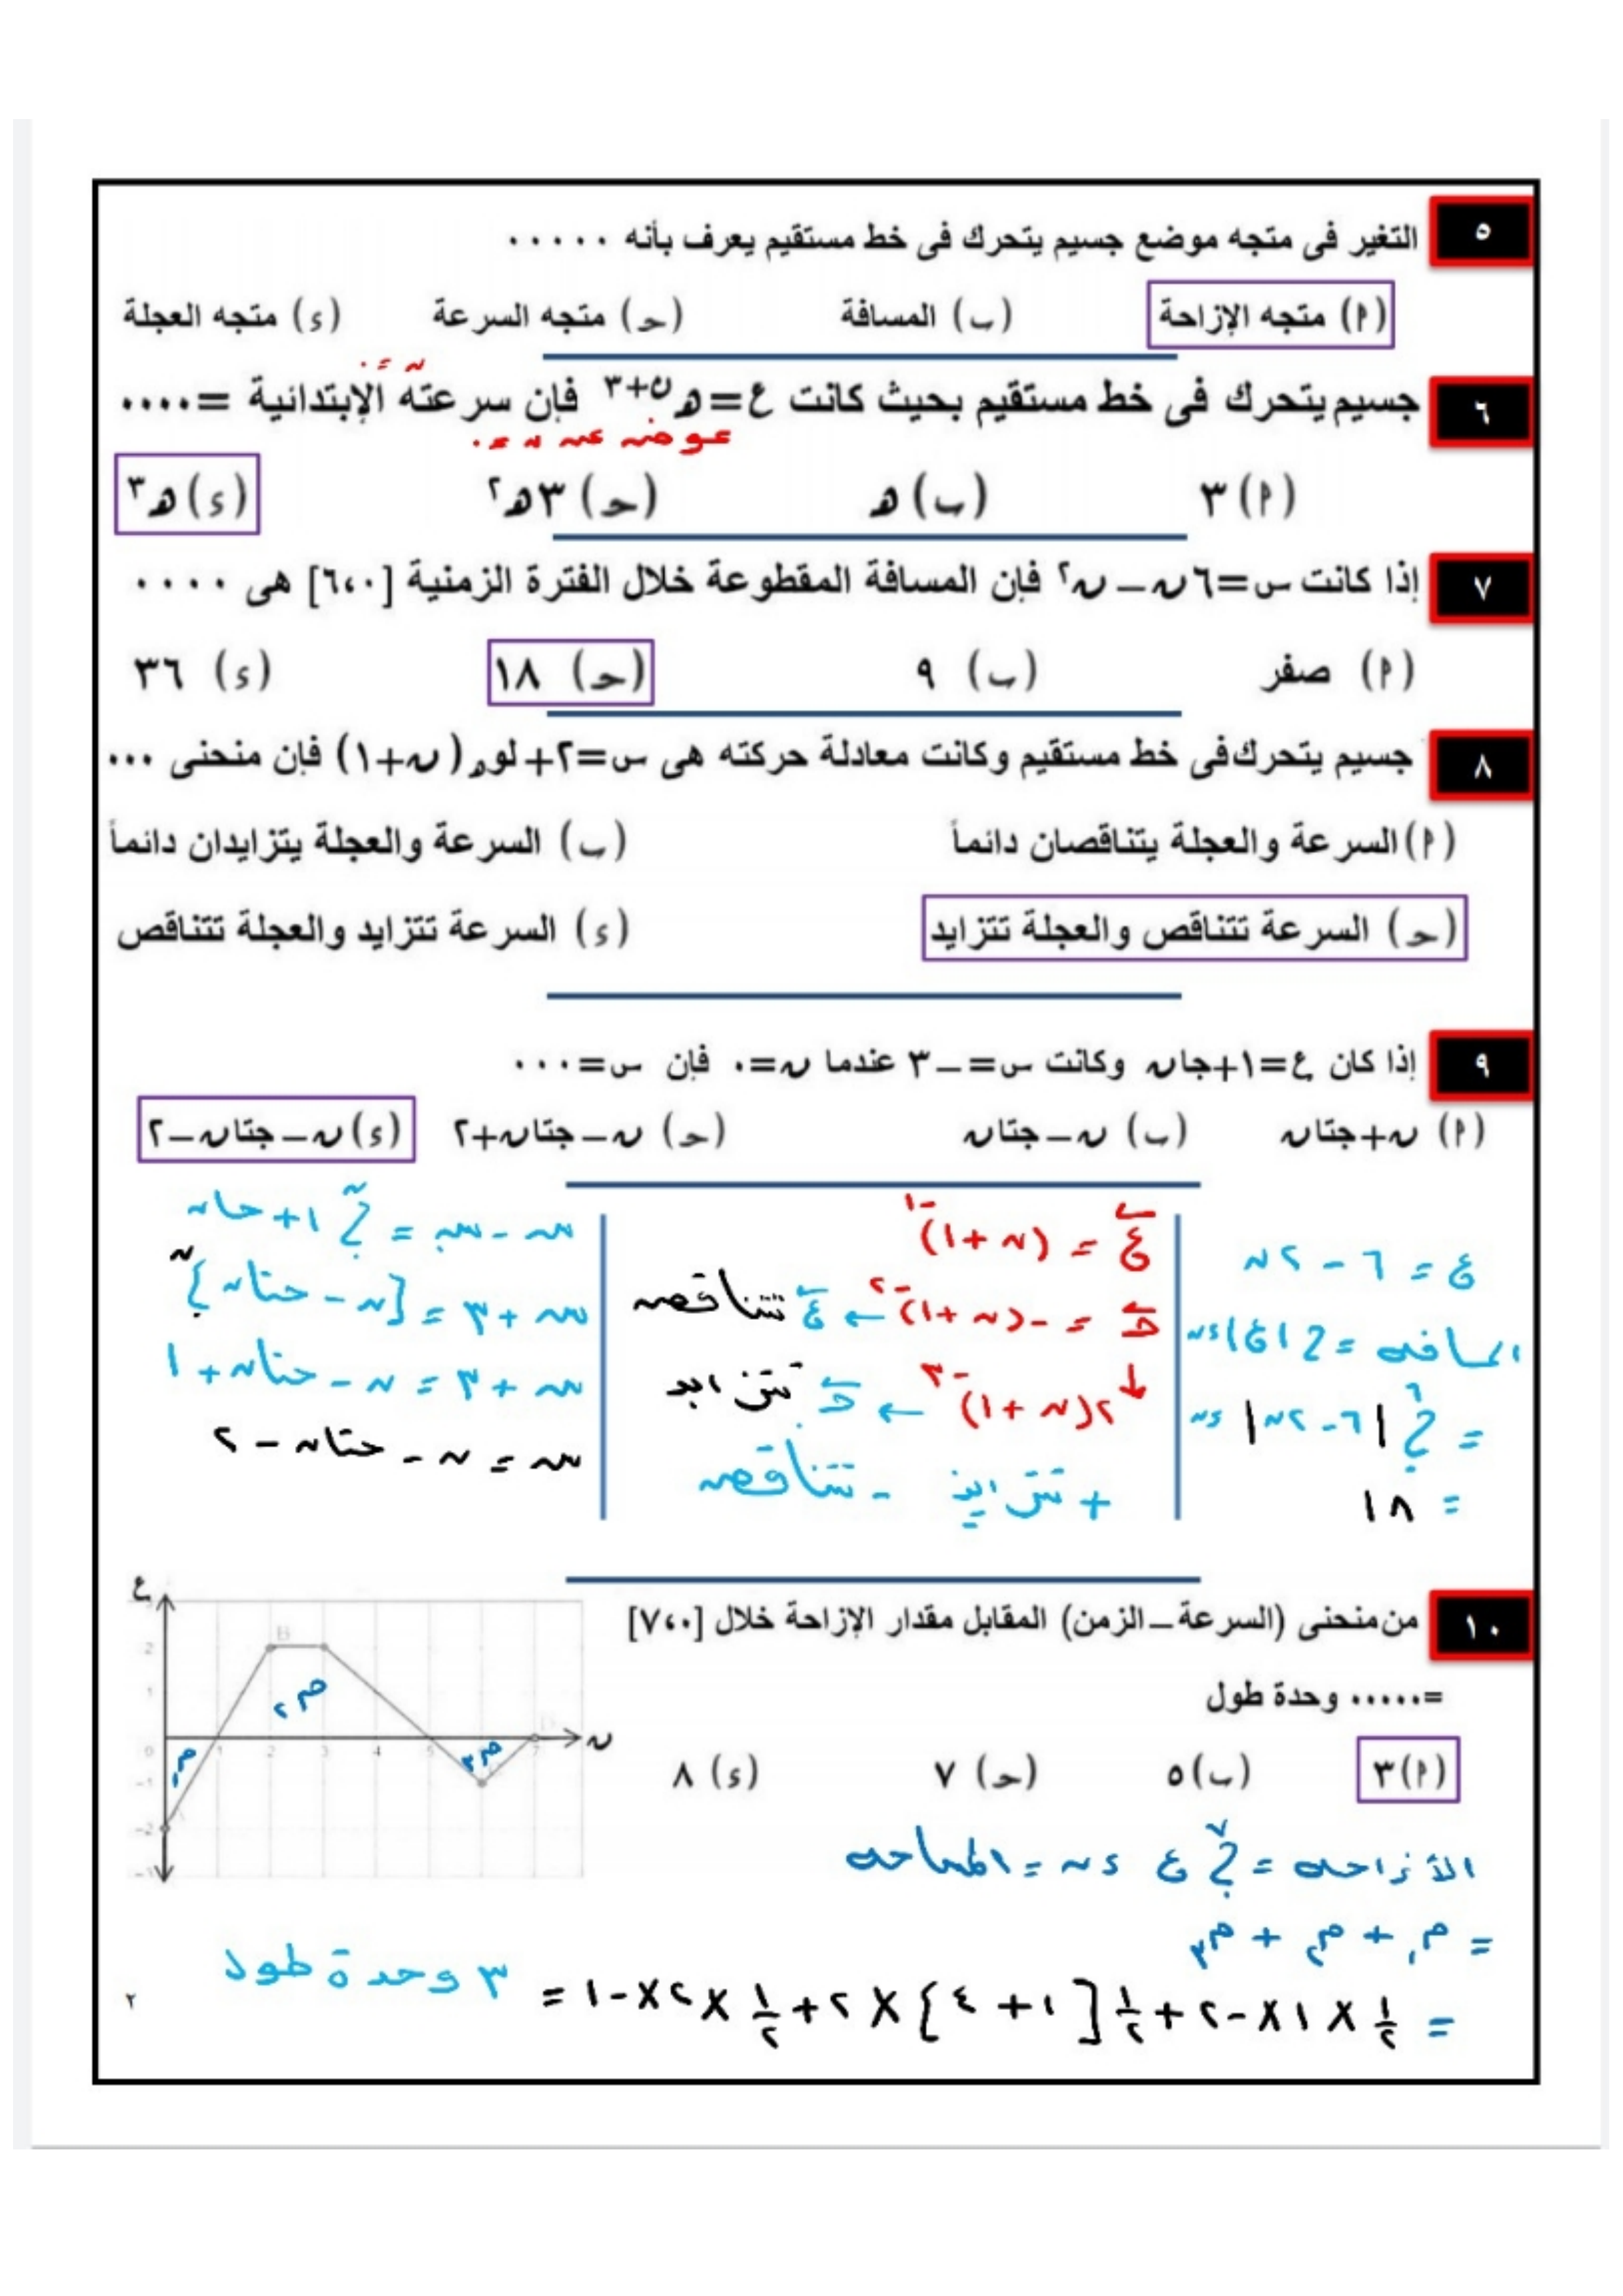 ٥ التغير فى متجه موضع جسيم يتحرك فى خط مستقيم يعرف بأنه ٠٠٠٠٠
(أ) متجه الإزاحة (ب) المسافة (حـ) متجه السرعة (ء) متجه العجلة
٦ جسيم يتحرك فى خط مستقيم بحيث كانت ع=هـ^ن+٣ فإن سرعته الإبتدائية =٠٠٠٠
ن = ٠
عوضه عند ن = ٠
(أ) ٣ (ب) هـ (حـ) ٣هـ^٢ (ء) هـ^٣
٧ إذا كانت س=٦ن–ن^٢ فإن المسافة المقطوعة خلال الفترة الزمنية [٦،٠] هى ٠٠٠٠
(أ) صفر (ب) ٩ (حـ) ١٨ (ء) ٣٦
٨ جسيم يتحرك فى خط مستقيم وكانت معادلة حركته هى س=٢+لوهـ(ن+١) فإن منحنى ٠٠٠
(أ) السرعة والعجلة يتناقصان دائماً (ب) السرعة والعجلة يتزايدان دائماً
(حـ) السرعة تتناقص والعجلة تتزايد (ء) السرعة تتزايد والعجلة تتناقص
٩ إذا كان ع=١+جان وكانت س=–٣ عندما ن=٠ فإن س=٠٠٠
(أ) ن+جتان (ب) ن–جتان (حـ) ن–جتان+٢ (ء) ن–جتان–٢
ع = ٦ - ٢ن
المسافه = ∫|ع|ءن
= ∫٠^٦ |٦ - ٢ن| ءن
= ١٨
ع = (ن + ١)^-١
حـ = -(ن + ١)^-٢ ← ع تتناقصه
↓ ٢(ن + ١)^-٣ ← حـ تتزايد
+ تتزايد - تتناقصه
س - س٠ = ∫٠^ن ١ + حان
س + ٣ = [ن - حتان]٠^ن
س + ٣ = ن - حتان + ١
س = ن - حتان - ٢
١٠ من منحنى (السرعة–الزمن) المقابل مقدار الإزاحة خلال [٧،٠]
=٠٠٠٠٠ وحدة طول
(أ) ٣ (ب) ٥ (حـ) ٧ (ء) ٨
ع
B
2
1
0 1 2 3 4 5 7
-1
-2
ن
م١
م٢
م٣
الأزاحه = ∫٠^٧ ع ءن = المساحه
= م١ + م٢ + م٣
= ١/٢ × ١ × -٢ + ١/٢ [١ + ٤] × ٢ + ١/٢ × ٢ × -١ = ٣ وحدة طول
٢